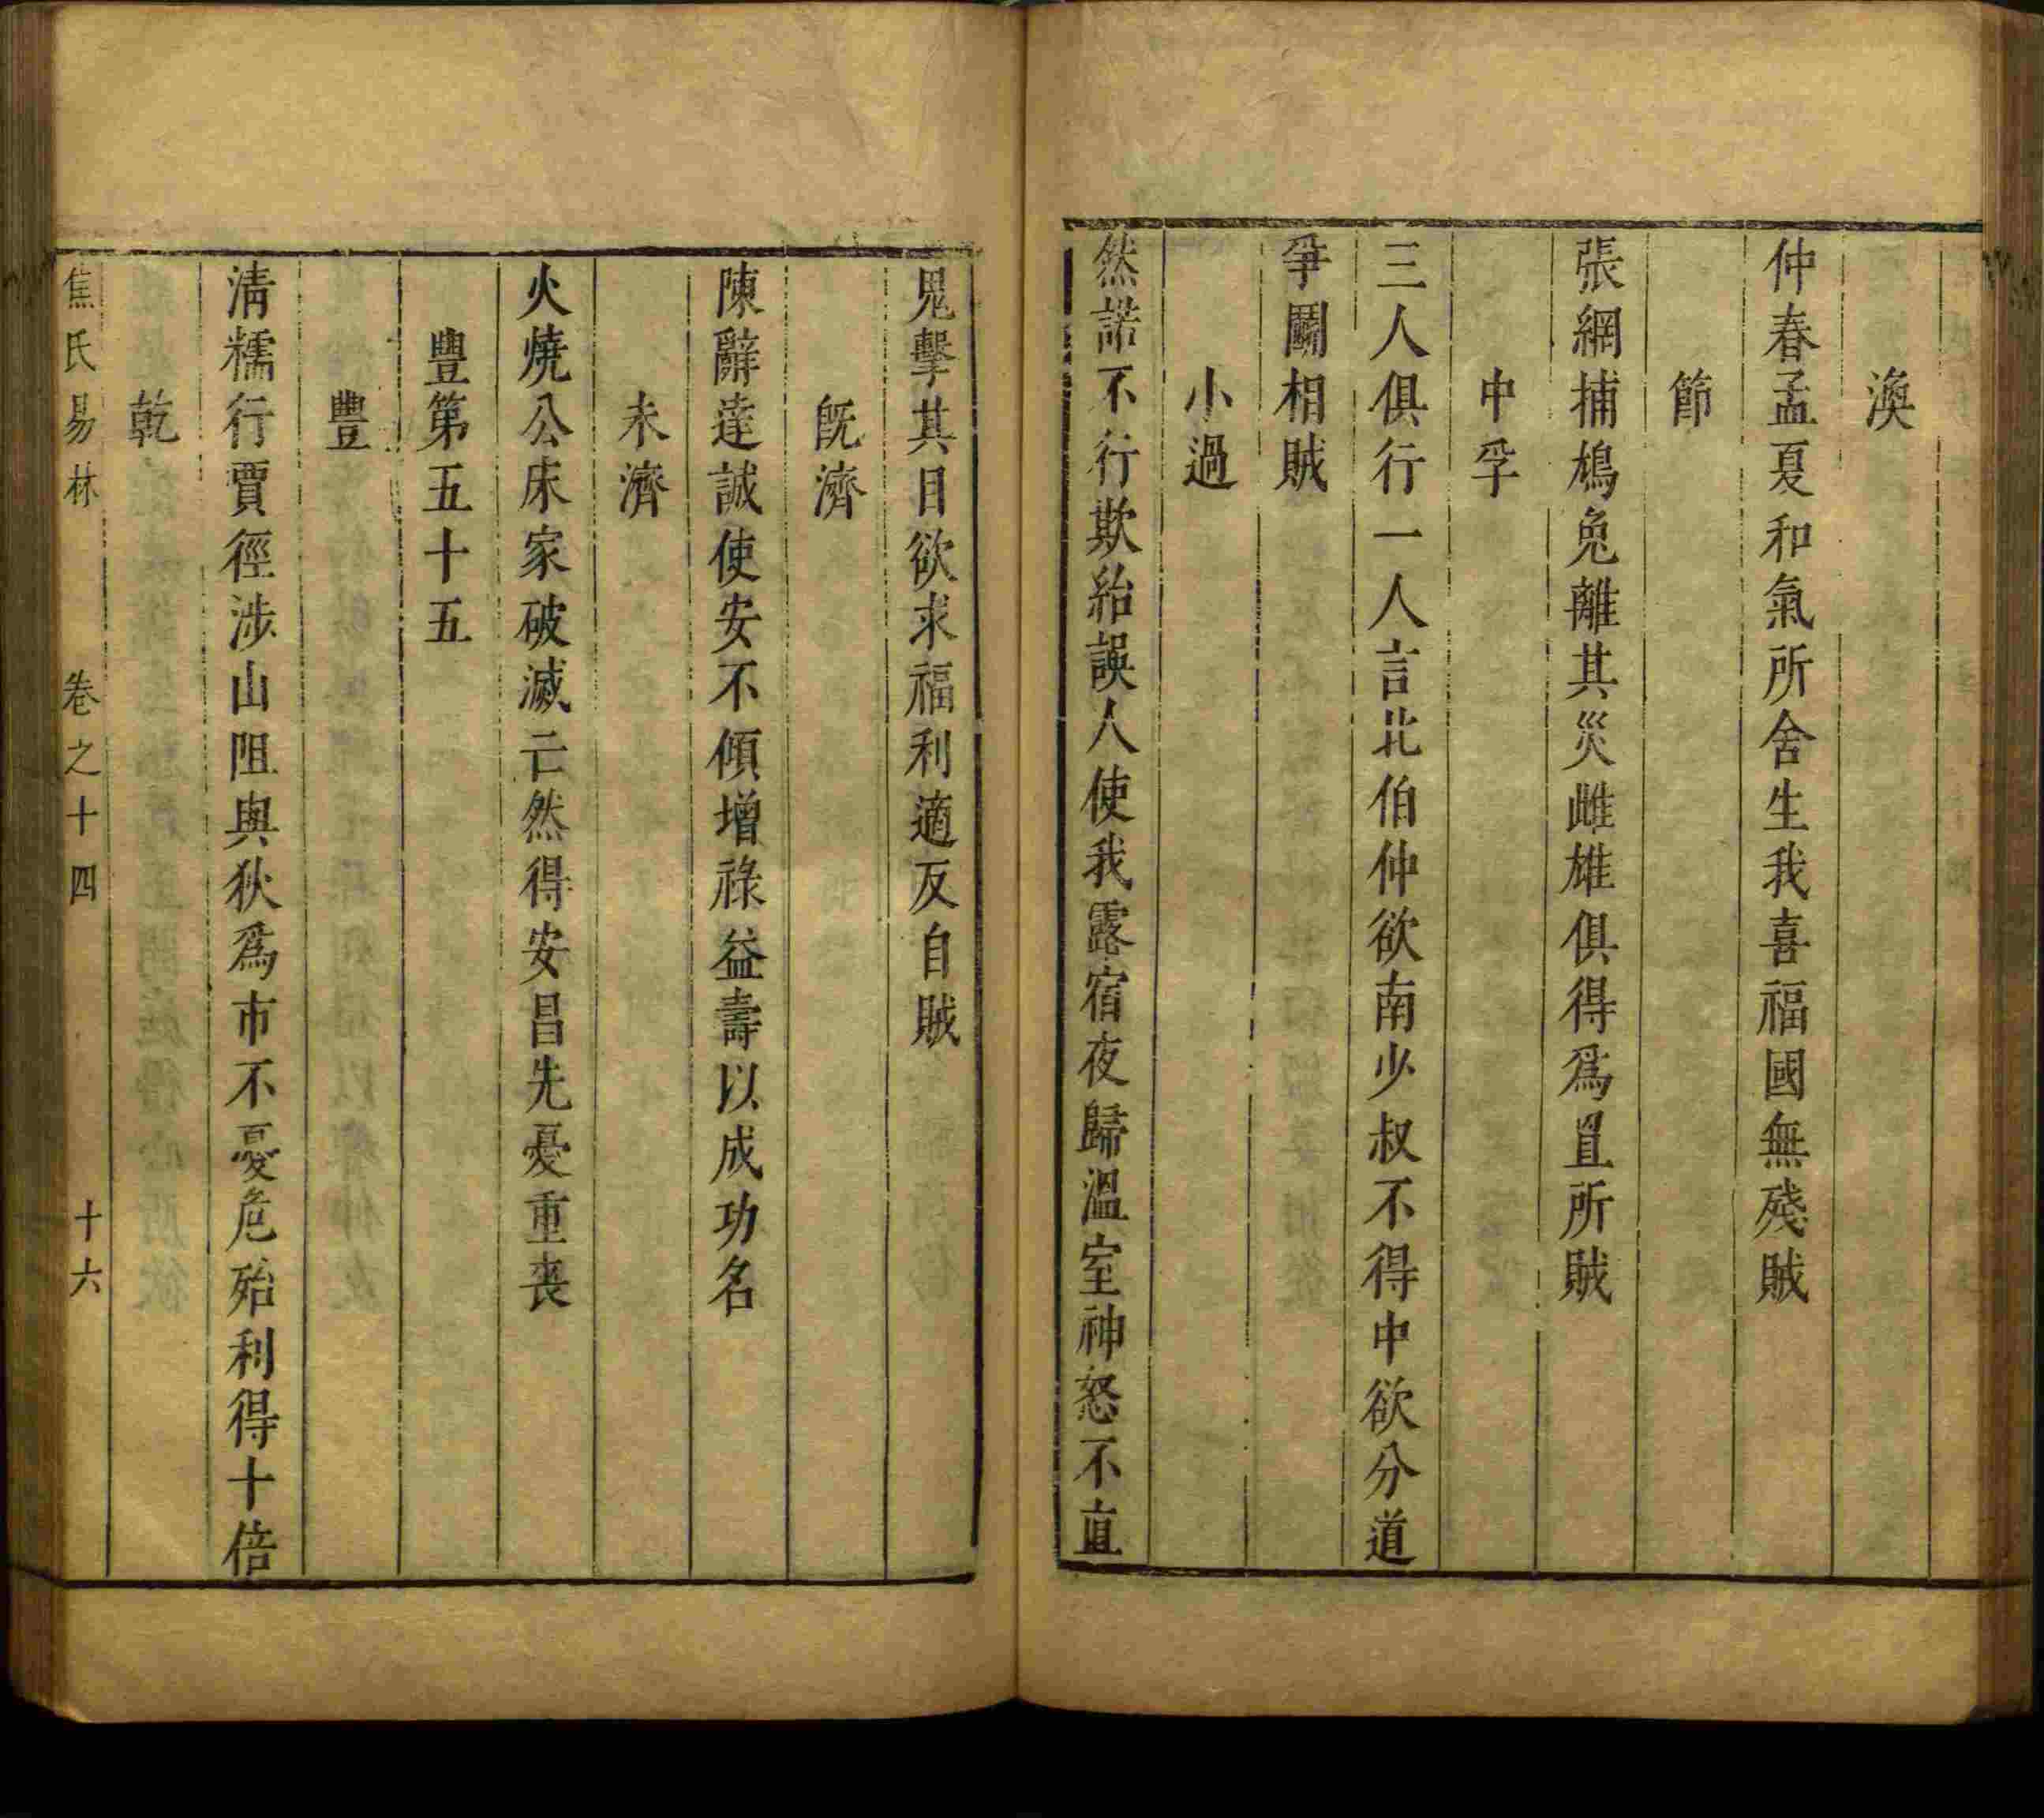 渙
仲春孟夏和氣所舍生我喜福國無殘賊
節
張網捕鳩兔離其災雌雄俱得爲罝所賊
中孚
三人俱行一人言北伯仲欲南少叔不得中欲分道
爭鬭相賊
小過
然諾不行欺紿誤人使我露宿夜歸溫室神怒不直
鬼擊其目欲求福利適反自賊
旣濟
陳辭達誠使安不傾增祿益壽以成功名
未濟
火燒公床家破滅亡然得安昌先憂重喪
豐第五十五
豐
淸糯行賈徑涉山阻與狄爲市不憂危殆利得十倍
乾
焦氏易林 卷之十四 十六